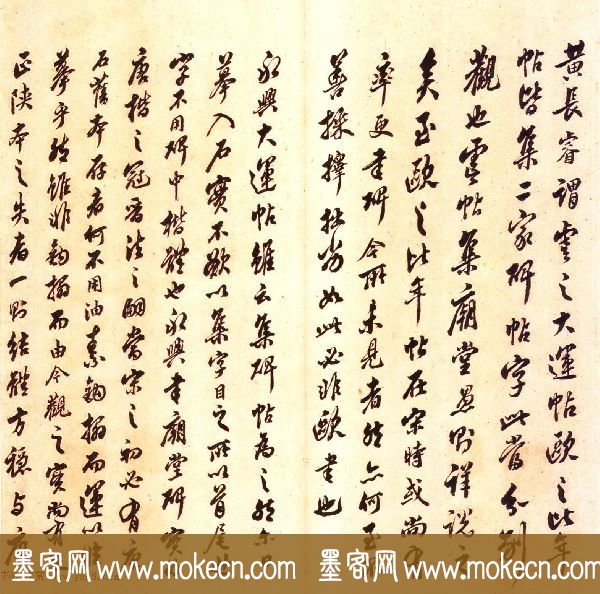 黄長睿謂虞之大運帖歐之比年
帖皆集二家碑帖字此當分別
觀也虞帖集廟堂愚則詳說之
矣至歐之比年帖在宋時或尚有
率更書碑今所未見者然亦何至
善採擇拙劣如此必非歐書也
永興大運帖雖云集碑帖為之然
摹入石實不敢以集字目之所以首尾
字不用碑中楷體也永興書廟堂碑實
唐楷之冠晉法之嗣當宋之初必有唐
石舊本存者何不用油素鉤搨而運以
摹乎然雖非鉤搨而由今觀之實尚有
正陝本之失者一則結體方穩与唐
墨客网 www.mokecn.com 墨客网 www.mokecn.com